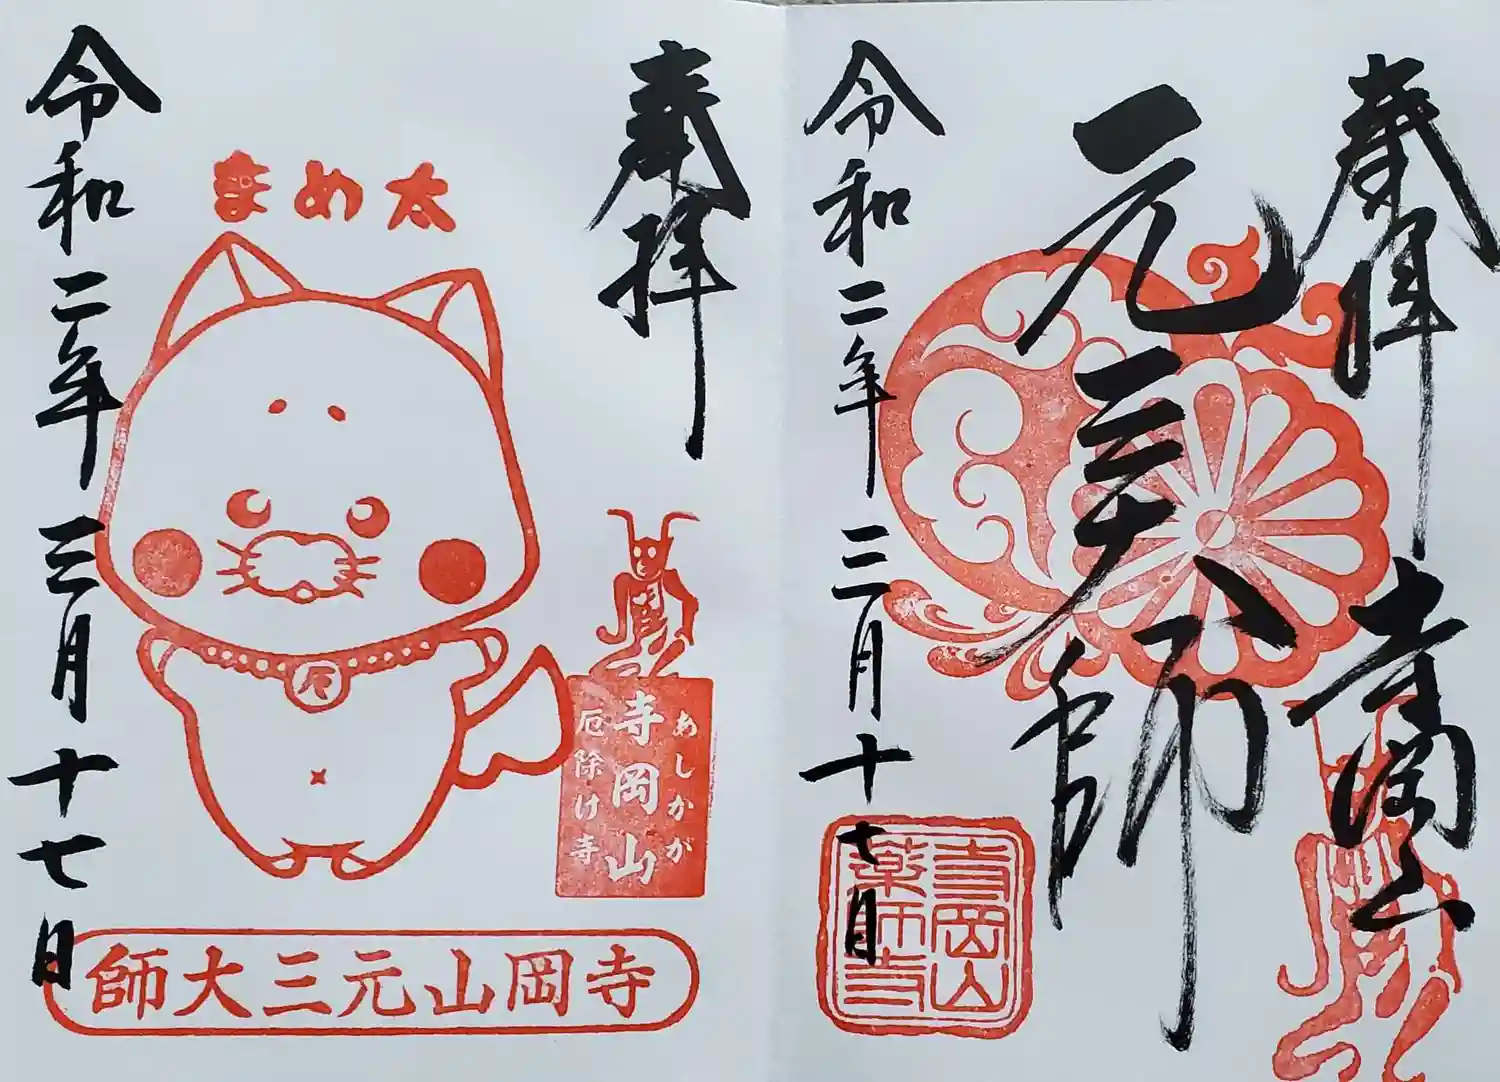 奉拝
寺岡山
元三大師
令和二年三月十七日
寺岡山
薬師寺
奉拝
まめ太
厄
あしかが
寺岡山
厄除け寺
令和二年三月十七日
師大三元山岡寺